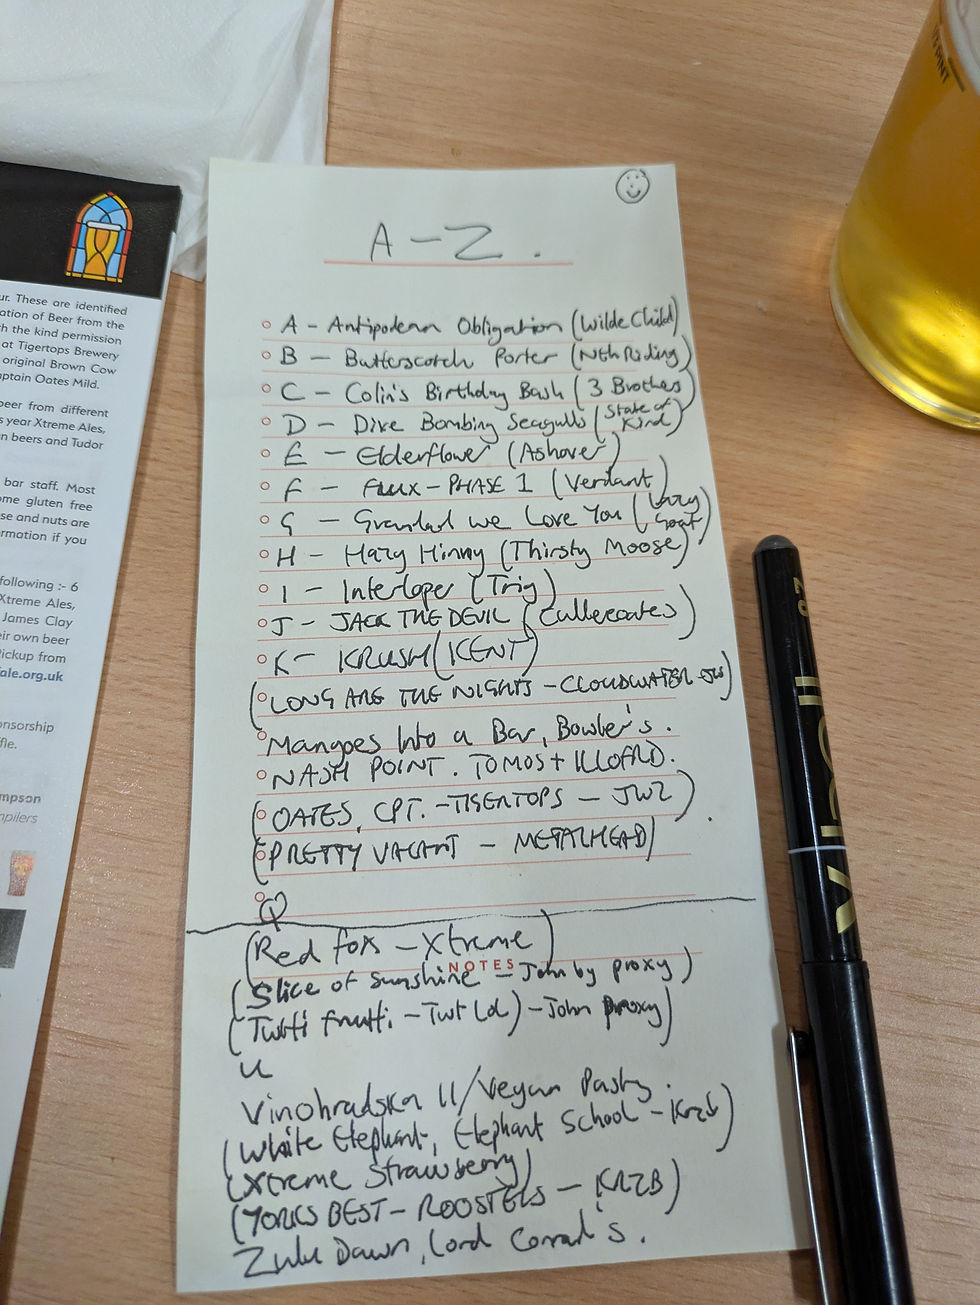 PINT
ur. These are identified
ation of Beer from the
h the kind permission
at Tigertops Brewery
original Brown Cow
ptain Oates Mild.
beer from different
s year Xtreme Ales,
n beers and Tudor
bar staff. Most
ome gluten free
se and nuts are
ormation if you
ollowing :- 6
Xtreme Ales,
James Clay
eir own beer
Pickup from
ale.org.uk
onsorship
ffle.
mpson
mpilers
A - Z.
A - Antipodean Obligation (Wilde Child)
B - Butterscotch Porter (Nth Riding)
C - Colin's Birthday Bash (3 Brothers)
D - Dive Bombing Seagulls (State of Kind)
E - Elderflower (Ashover)
F - FLUX - PHASE 1 (Verdant)
G - Grandad we Love You (Lazy Goat)
H - Hazy Hinny (Thirsty Moose)
I - Interloper (Trig)
J - JACK THE DEVIL (Cullercoates)
K - KRUSH (KENT)
(LONG ARE THE NIGHTS - CLOUDWATER - JW)
Mangoes Into a Bar, Bowler's.
NASH POINT. TOMOS +
(OATES, CPT. - TIGERTOPS - JWZ)
(PRETTY VACANT - METALHEAD)
Q
(Red fox - Xtreme)
NOTES
(Slice of sunshine - John by proxy)
(Tutti frutti - Twt Lol) - John proxy)
U
Vinohradska 11/Vegan Pasty.
(White Elephant, Elephant School - Krzb)
(Xtreme Strawberry)
(YORKS BEST - ROOSTERS - KRZB)
Zulu Dawn, Lord Conrad's.